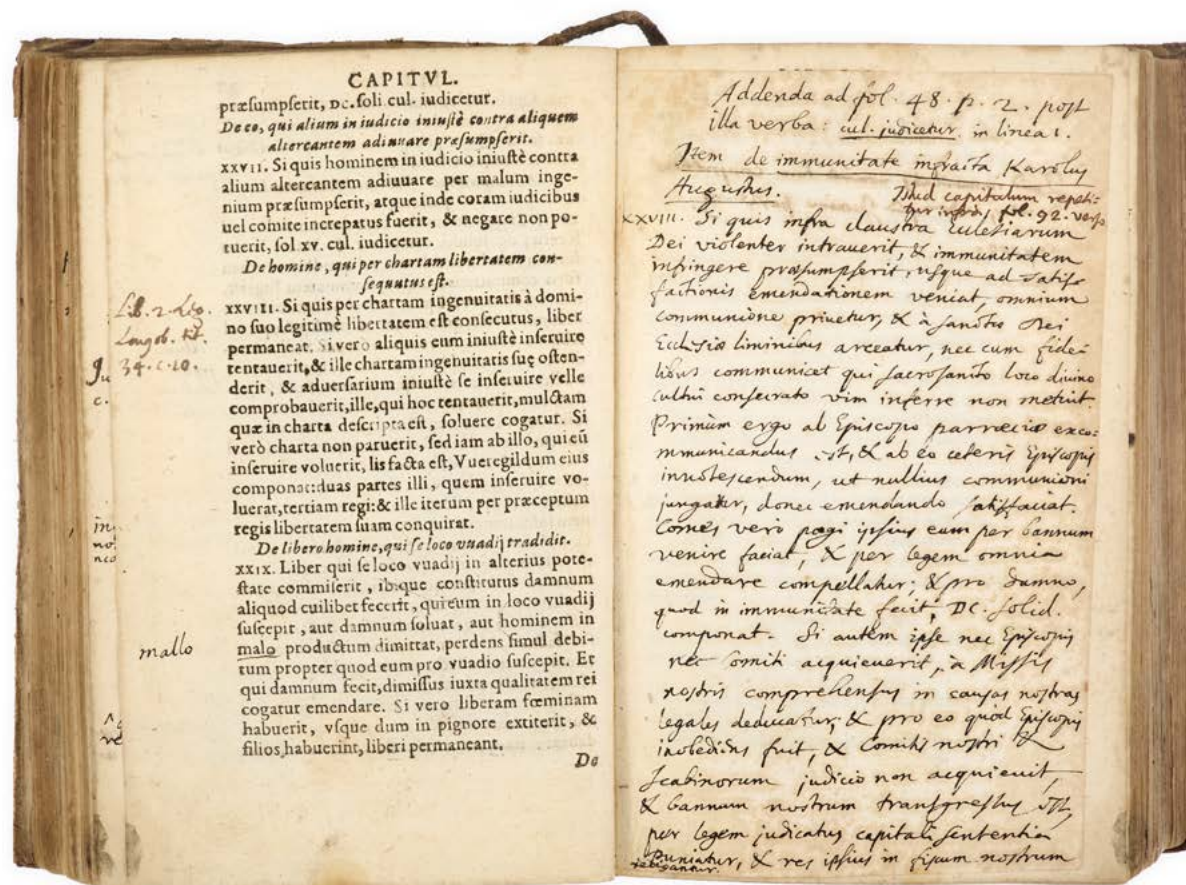 CAPITVL.
præsumpserit, DC. soli. cul. iudicetur.
De eo, qui alium in iudicio iniustè contra aliquem
altercantem adiuuare præsumpserit.
XXVII. Si quis hominem in iudicio iniustè contra
alium altercantem adiuuare per malum inge-
nium præsumpserit, atque inde coram iudicibus
uel comite increpatus fuerit, & negare non po-
tuerit, sol xv. cul. iudicetur.
De homine, qui per chartam libertatem con-
sequutus est.
XXVIII. Si quis per chartam ingenuitatis à domi-
no suo legitimè libertatem est consecutus, liber
permaneat. Si vero aliquis eum iniustè inseruire
tentauerit, & ille chartam ingenuitatis suę osten-
derit, & aduersarium iniustè se inseruire velle
comprobauerit, ille, qui hoc tentauerit, mulctam
quæ in charta descripta est, soluere cogatur. Si
verò charta non paruerit, sed iam ab illo, qui eū
inseruire voluerit, lis facta est, Vueregildum eius
componat: duas partes illi, quem inseruire vo-
luerat, tertiam regi: & ille iterum per præceptum
regis libertatem suam conquirat.
De libero homine, qui se loco vuadij tradidit.
XXIX. Liber qui se loco vuadij in alterius pote-
state commiserit, ibique constitutus damnum
aliquod cuilibet fecerit, qui eum in loco vuadij
suscepit, aut damnum soluat, aut hominem in
malo productum dimittat, perdens simul debi-
tum propter quod eum pro vuadio suscepit. Et
qui damnum fecit, dimissus iuxta qualitatem rei
cogatur emendare. Si vero liberam fœminam
habuerit, vsque dum in pignore extiterit, &
filios habuerint, liberi permaneant.
De
Lib. 2. Leg.
Longob. tit.
34. c. 10.
mallo
Addenda ad fol. 48. p. 2. post
illa verba: cul. judicetur in linea 1.
Item de immunitate infracta Karolus
Augustus.
Istud capitulum repeti-
tur infra, fol. 92. verso
XXVIII. Si quis infra claustra Ecclesiarum
Dei violenter intrauerit, & immunitatem
infringere præsumpserit, usque ad satis-
factionis emendationem veniat, omnium
communione priuetur, & à sanctæ Dei
Ecclesiæ liminibus arceatur, nec cum fide-
libus communicet qui sacrosancto loco diuino
cultui consecrato vim inferre non metuit.
Primùm ergo ab Episcopo parrœciæ exco-
mmunicandus est, & ab eo ceteris Episcopis
innotescendum, ut nullius communioni
jungatur, donec emendando satisfaciat.
Comes verò pagi ipsius eum per bannum
venire faciat, & per legem omnia
emendare compellatur; & pro damno,
quod in immunitate fecit, DC. solid.
componat. Si autem ipse nec Episcopis
nec Comiti acquieuerit, à Missis
nostris comprehensus in causas nostras
legales deducatur, & pro eo quòd Episcopis
inobediens fuit, & Comitis nostri &
Scabinorum judicio non acquieuit,
& bannum nostrum transgressus est,
per legem judicatus capitali sententiâ
puniatur, & res ipsius in fiscum nostrum
redigantur.